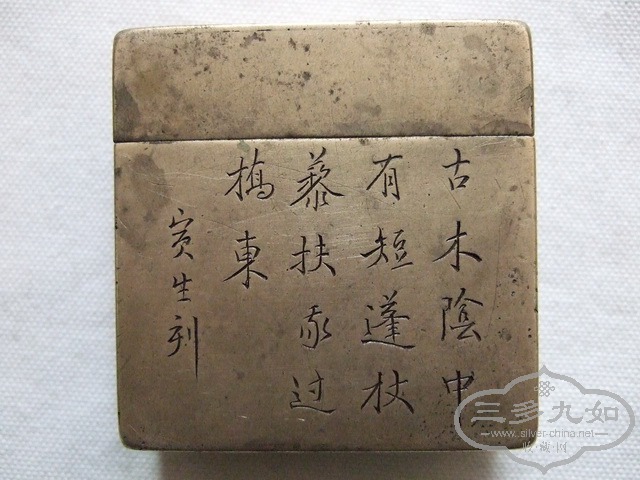 古木陰中
有短蓬杖
藜扶我过
橋東
寅生刻
三多九如
www.silver-china.net
收·藏·网